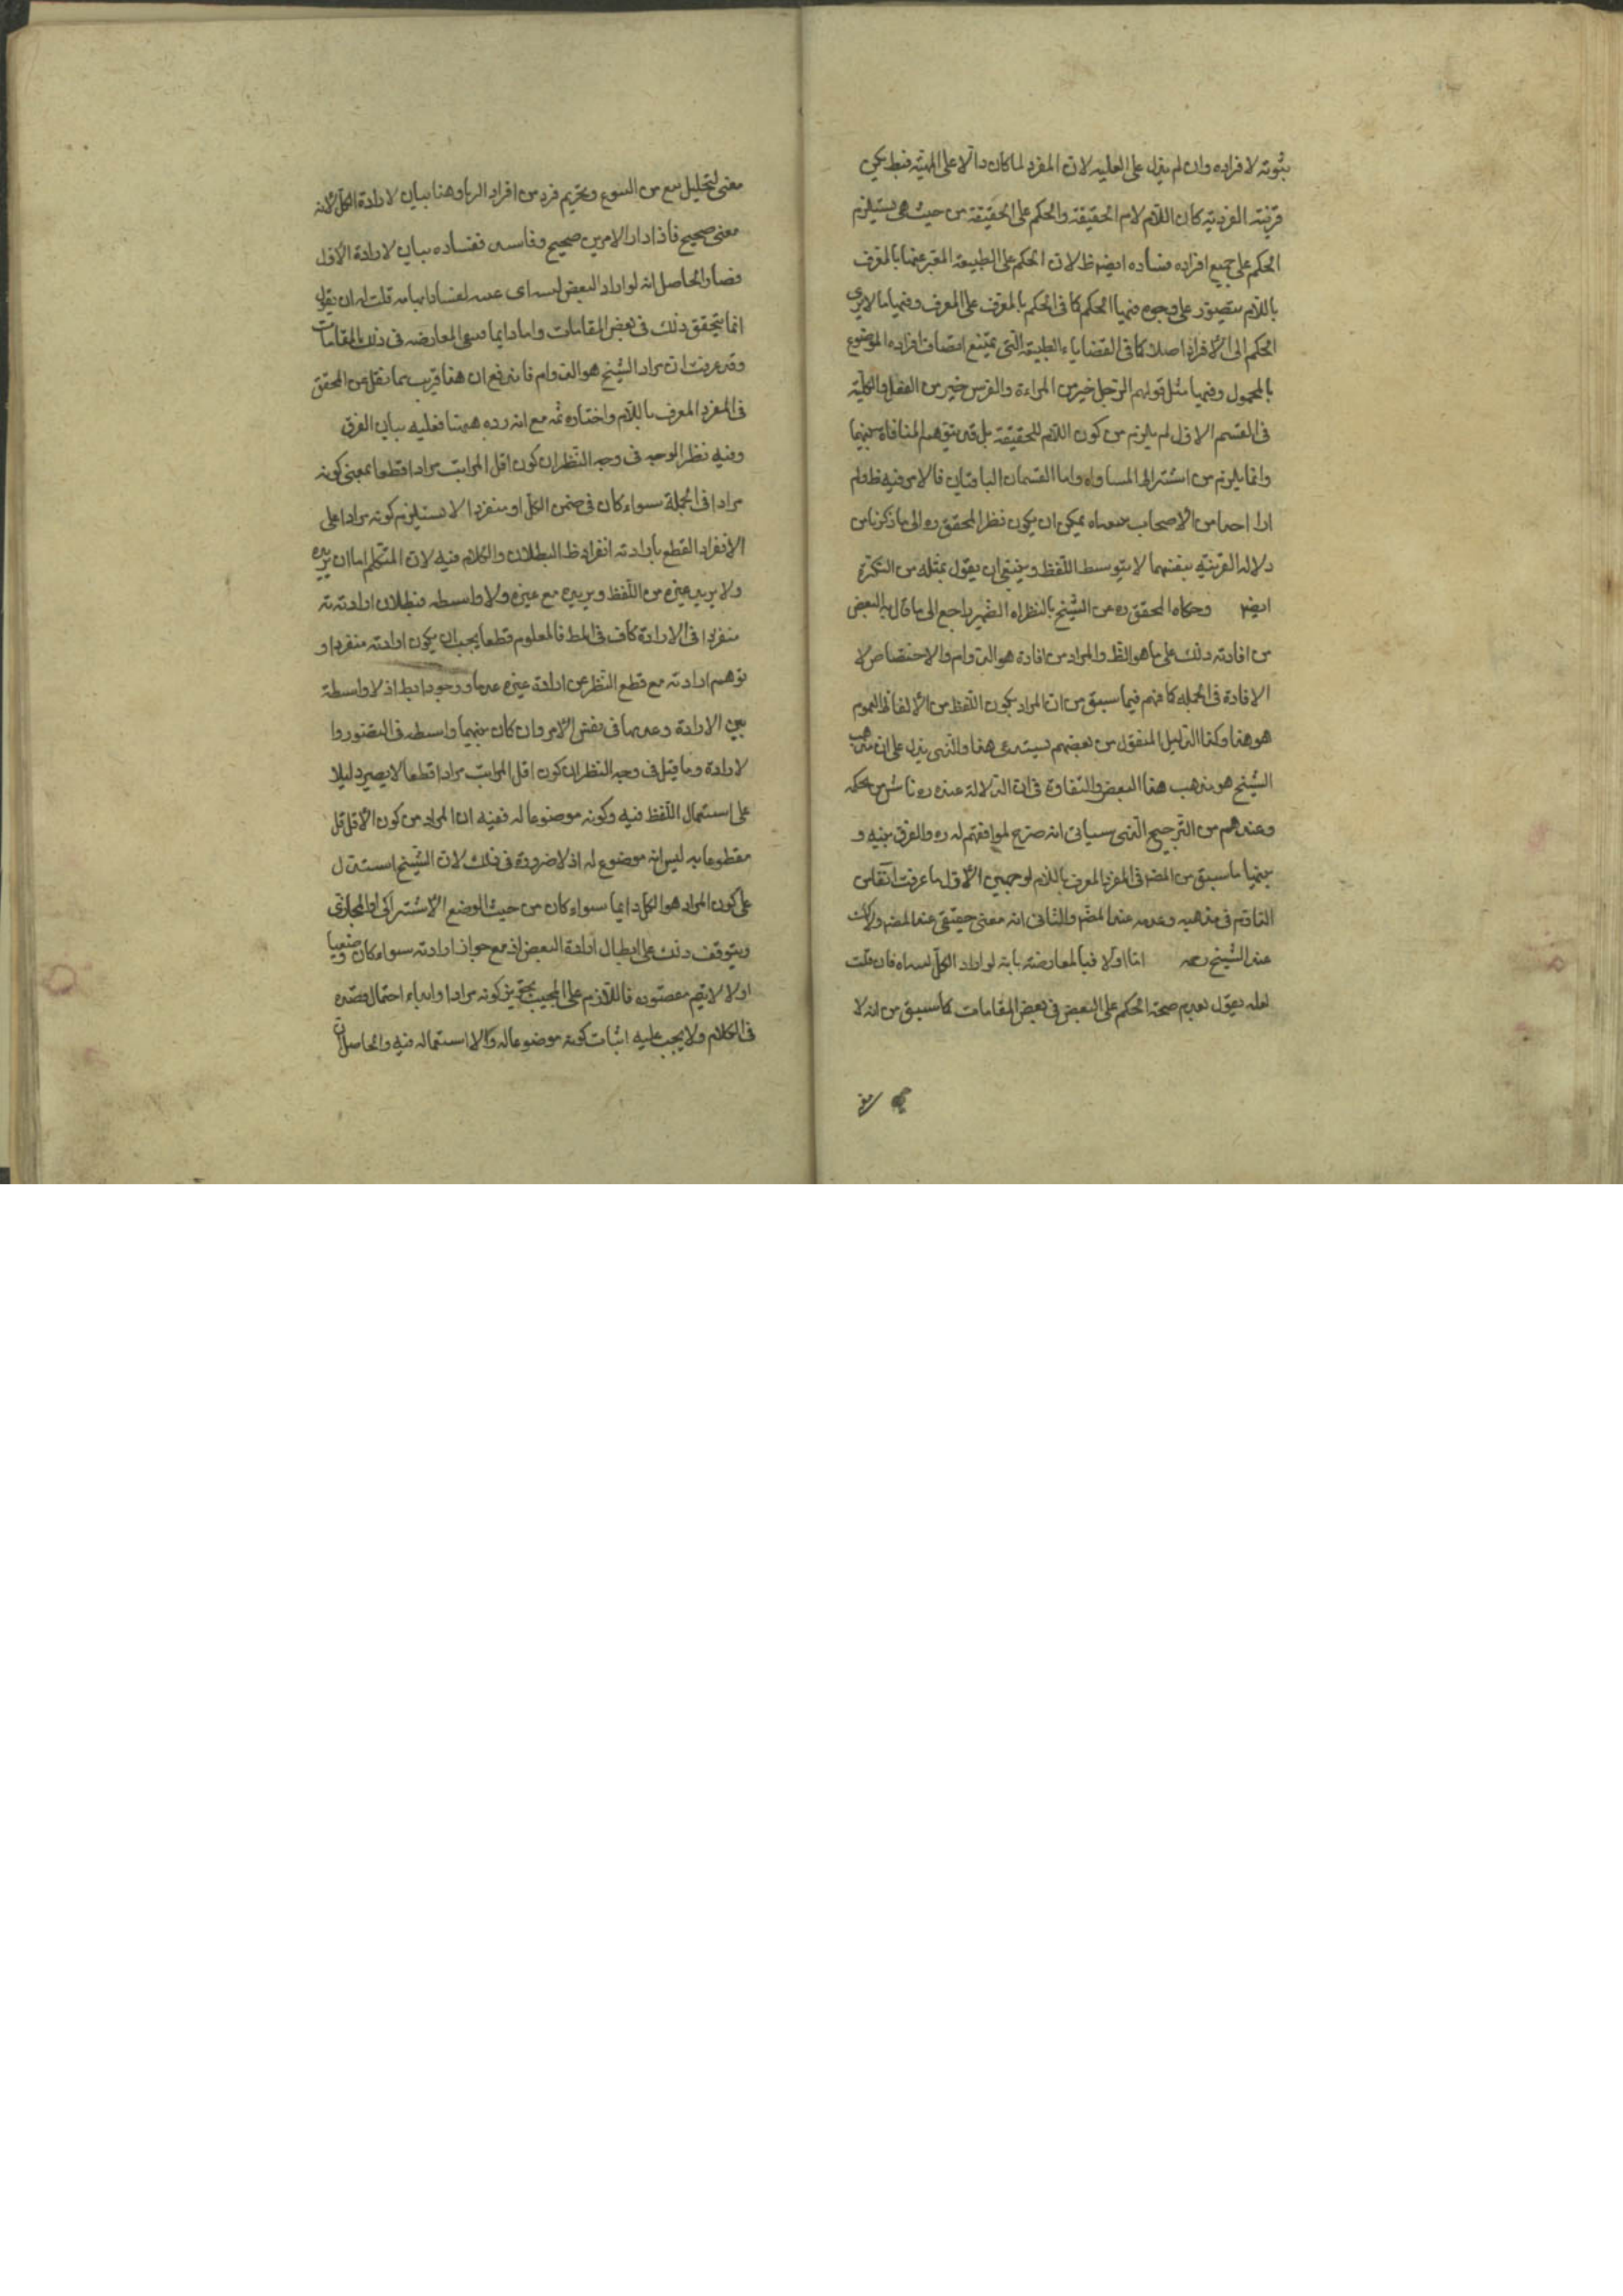 بثبوته لافراده وان لم يدل على العليه لان المفرد لما كان دالا على المهية فبط يكن
قرينة الفردية كان اللام لام الحقيقة والحكم على الحقيقة من حيث هى يستلزم
الحكم على جميع افراده فساده ايضا ظ لان الحكم على الطبيعة المعبر عنها بالمعرف
باللام يتصور على وجوه فمنها الحكم كما فى الحكم بالمعرف على المعرف ومنها ما لا يسرى
الحكم الى الافراد اصلا كما فى القضايا الطبيعة التى يمتنع اتصاف افراده الموضوع
بالمحمول ومنها مثل قولهم الرجل خير من المراءة والفرس خير من البغل والكلية
فى القسم الاول لم يلزم من كون اللام للحقيقة بل قد يتوهم المنافاة بينهما
وانما يلزم من اشتراط المساواه واما القسمان الباقيان فالامر فيه ظ ولم
دلالة القرينة بنفسها لا بتوسط اللفظ وينبغى ان يقول بمثله من النكرة
ايضا وحكاه المحقق ره عن الشيخ بالنظر اه الضمير راجع الى ما قال به البعض
من افادته ذلك على ما هو الظ والمراد من افادة هو الدوام والاختصاص لا
الافادة فى الجمله كما فهم فيما سبق من ان المراد بكون اللفظ من الالفاظ العموم
هو هذا وكذا الدليل المنقول من بعضهم يستدعى هذا والذى يدل على ان مذهب
الشيخ هو مذهب هذا البعض والتفاوة فى ان الدلالة عنده ره ناش من حكمه
وعندهم من الترجيح الذى سياتى انه صرح لموافقتهم له ره والفرق بينه و
بينها ما سبق من المصـ فى المفرد المعرف باللام لوجهين الاول ما عرفت آنفا من
التادم فى مذهبه وعدمه عند المصـ والثانى انه معنى حقيقى عند المصـ ولا كك
عند الشيخ رحمه اما اولا فبالمعارضة بانه لو اراد الكل لبيناه فان قلت
لعله يقول بعدم صحة الحكم على البعض فى بعض المقامات كما سبق من انه لا
معنى لتحليل بيع من البيوع وتحريم فرد من افراد الربا وهنا بيان لارادة الكل لانه
معنى صحيح فاذا دار الامر بين صحيح وفاسد ففساده بيان لارادة الاول
انما يتحقق ذلك فى بعض المقامات واما دايما فبقى المعارضه فى ذلك المقامات
وقد عرفت ان مراد الشيخ هو الدوام فاندفع ان هذا قريب مما نقل عن المحقق
فى المفرد المعرف باللام واختاره ثمه مع انه رده هيهنا فعليه بيان الفرق
وفيه نظر الوجه فى وجه النظر ان كون اقل المراتب مرادا قطعا بمعنى كونه
مرادا فى الجملة سواء كان فى ضمن الكل او منفردا لا يستلزم كونه مرادا على
الانفراد القطع بارادته انفراد ظ البطلان والكلام فيه لان المتكلم اما ان يريده
ولا يريد غيره من اللفظ ويريده مع غيره ولا واسطه فبطلان ارادته
منفردا فى الارادة كاف فى المط فالمعلوم قطعا يجب ان يكون ارادته منفردا و
توهم ارادته مع قطع النظر عن ارادة غيره عدما ووجودا بط اذ لا واسطة
بين الارادة وعدمها فى نفس الامر وان كان بينهما واسطه فى التصور وا
لارادة وما قيل فى وجه النظر ان كون اقل المراتب مرادا قطعا لا يصير دليلا
على استعمال اللفظ فيه وكونه موضوعا له ففيه ان المراد من كون الاقل قل
مقطوعا به ليس انه موضوع له اذ لا ضرورة فى ذلك لان الشيخ استدل
على كون المراد هو الكل دايما سواء كان من حيث الوضع الاشتراكى او المجازى
ويتوقف ذلك على ابطال ارادة البعض اذ مع جواز ارادته سواء كان وضعيا
اولا لا يتم مقصوده فاللازم على المجيب تجويز كونه مرادا وابداء احتمال قصده
فى الكلام ولا يجب عليه اثبات كونه موضوعا له والا استعماله فيه والحاصل ان